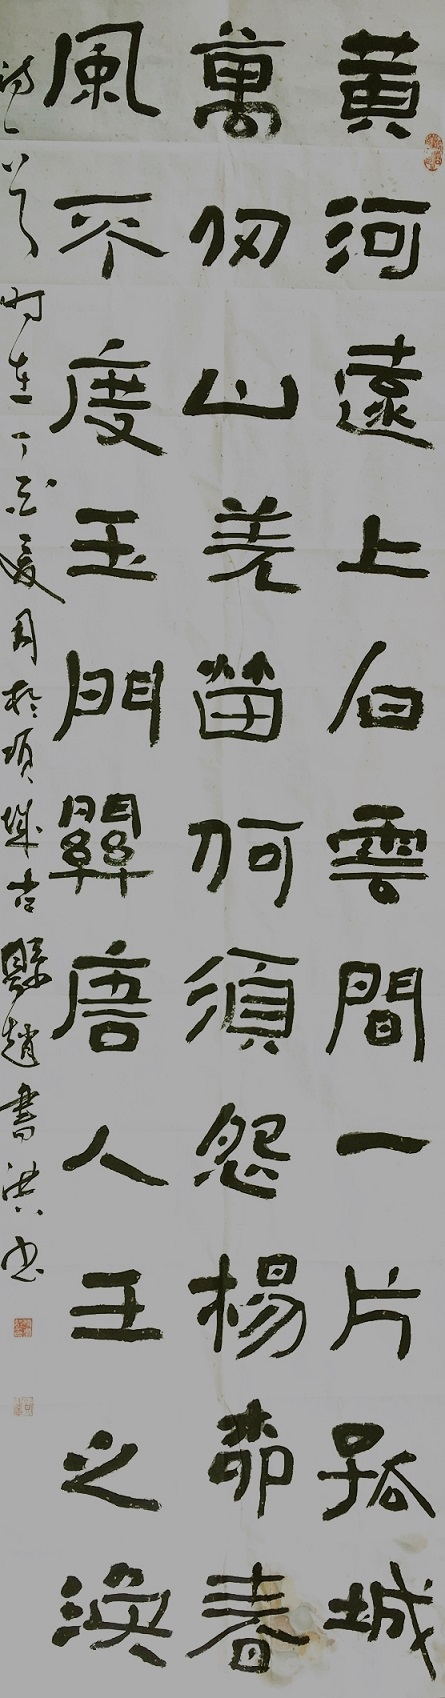 黃河遠上白雲間一片孤城
萬仞山羌笛何須怨楊柳春
風不度玉門關唐人王之渙
詩一首时在丁亥夏月於項城古縣趙書洪书